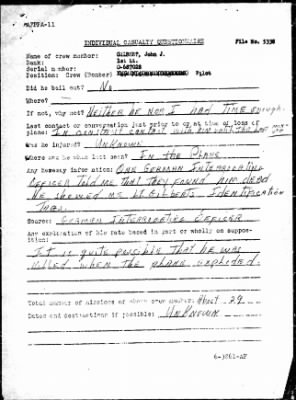 AFPPA-11
INDIVIDUAL CASUALTY QUESTIONNAIRE File No. 5338
Name of crew member: GILBERT, John J.
Rank: 1st Lt.
Serial number:
Position: Crew (Bomber) Pilot
Did he bail out? No
Where?
If not, why not? Neither he nor I had time enough.
Last contact or conversation just prior to or at time of loss of
plane: In constant contact with him until the last
Was he injured? Unknown
Where was he when last seen? In the Plane
Any hearsay information: One German Interrogating
Officer told me that they found him dead
He showed me Lt. Gilberts Identification
Tag.
Source: German Interrogating Officer
Any explanation of his fate based in part or wholly on suppo-
sition:
It is quite possible that he was
killed when the plane exploded.
Total number of missions of above crew member: About 29
Dates and destinations if possible: Unknown
6-3861-AF